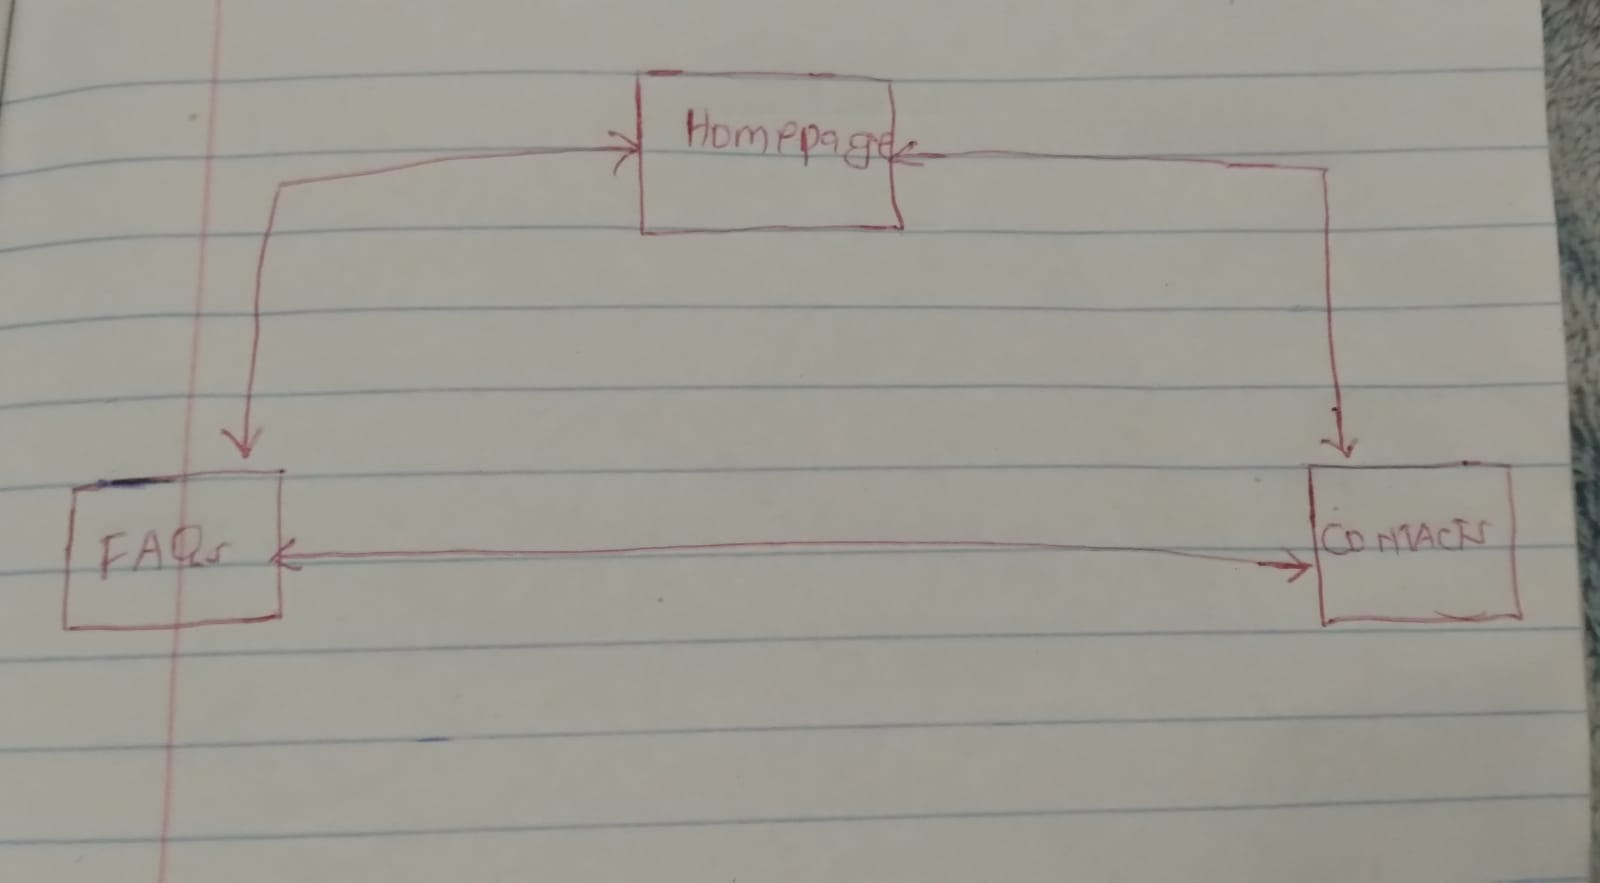 Homepage
FAQs
CONTACTS